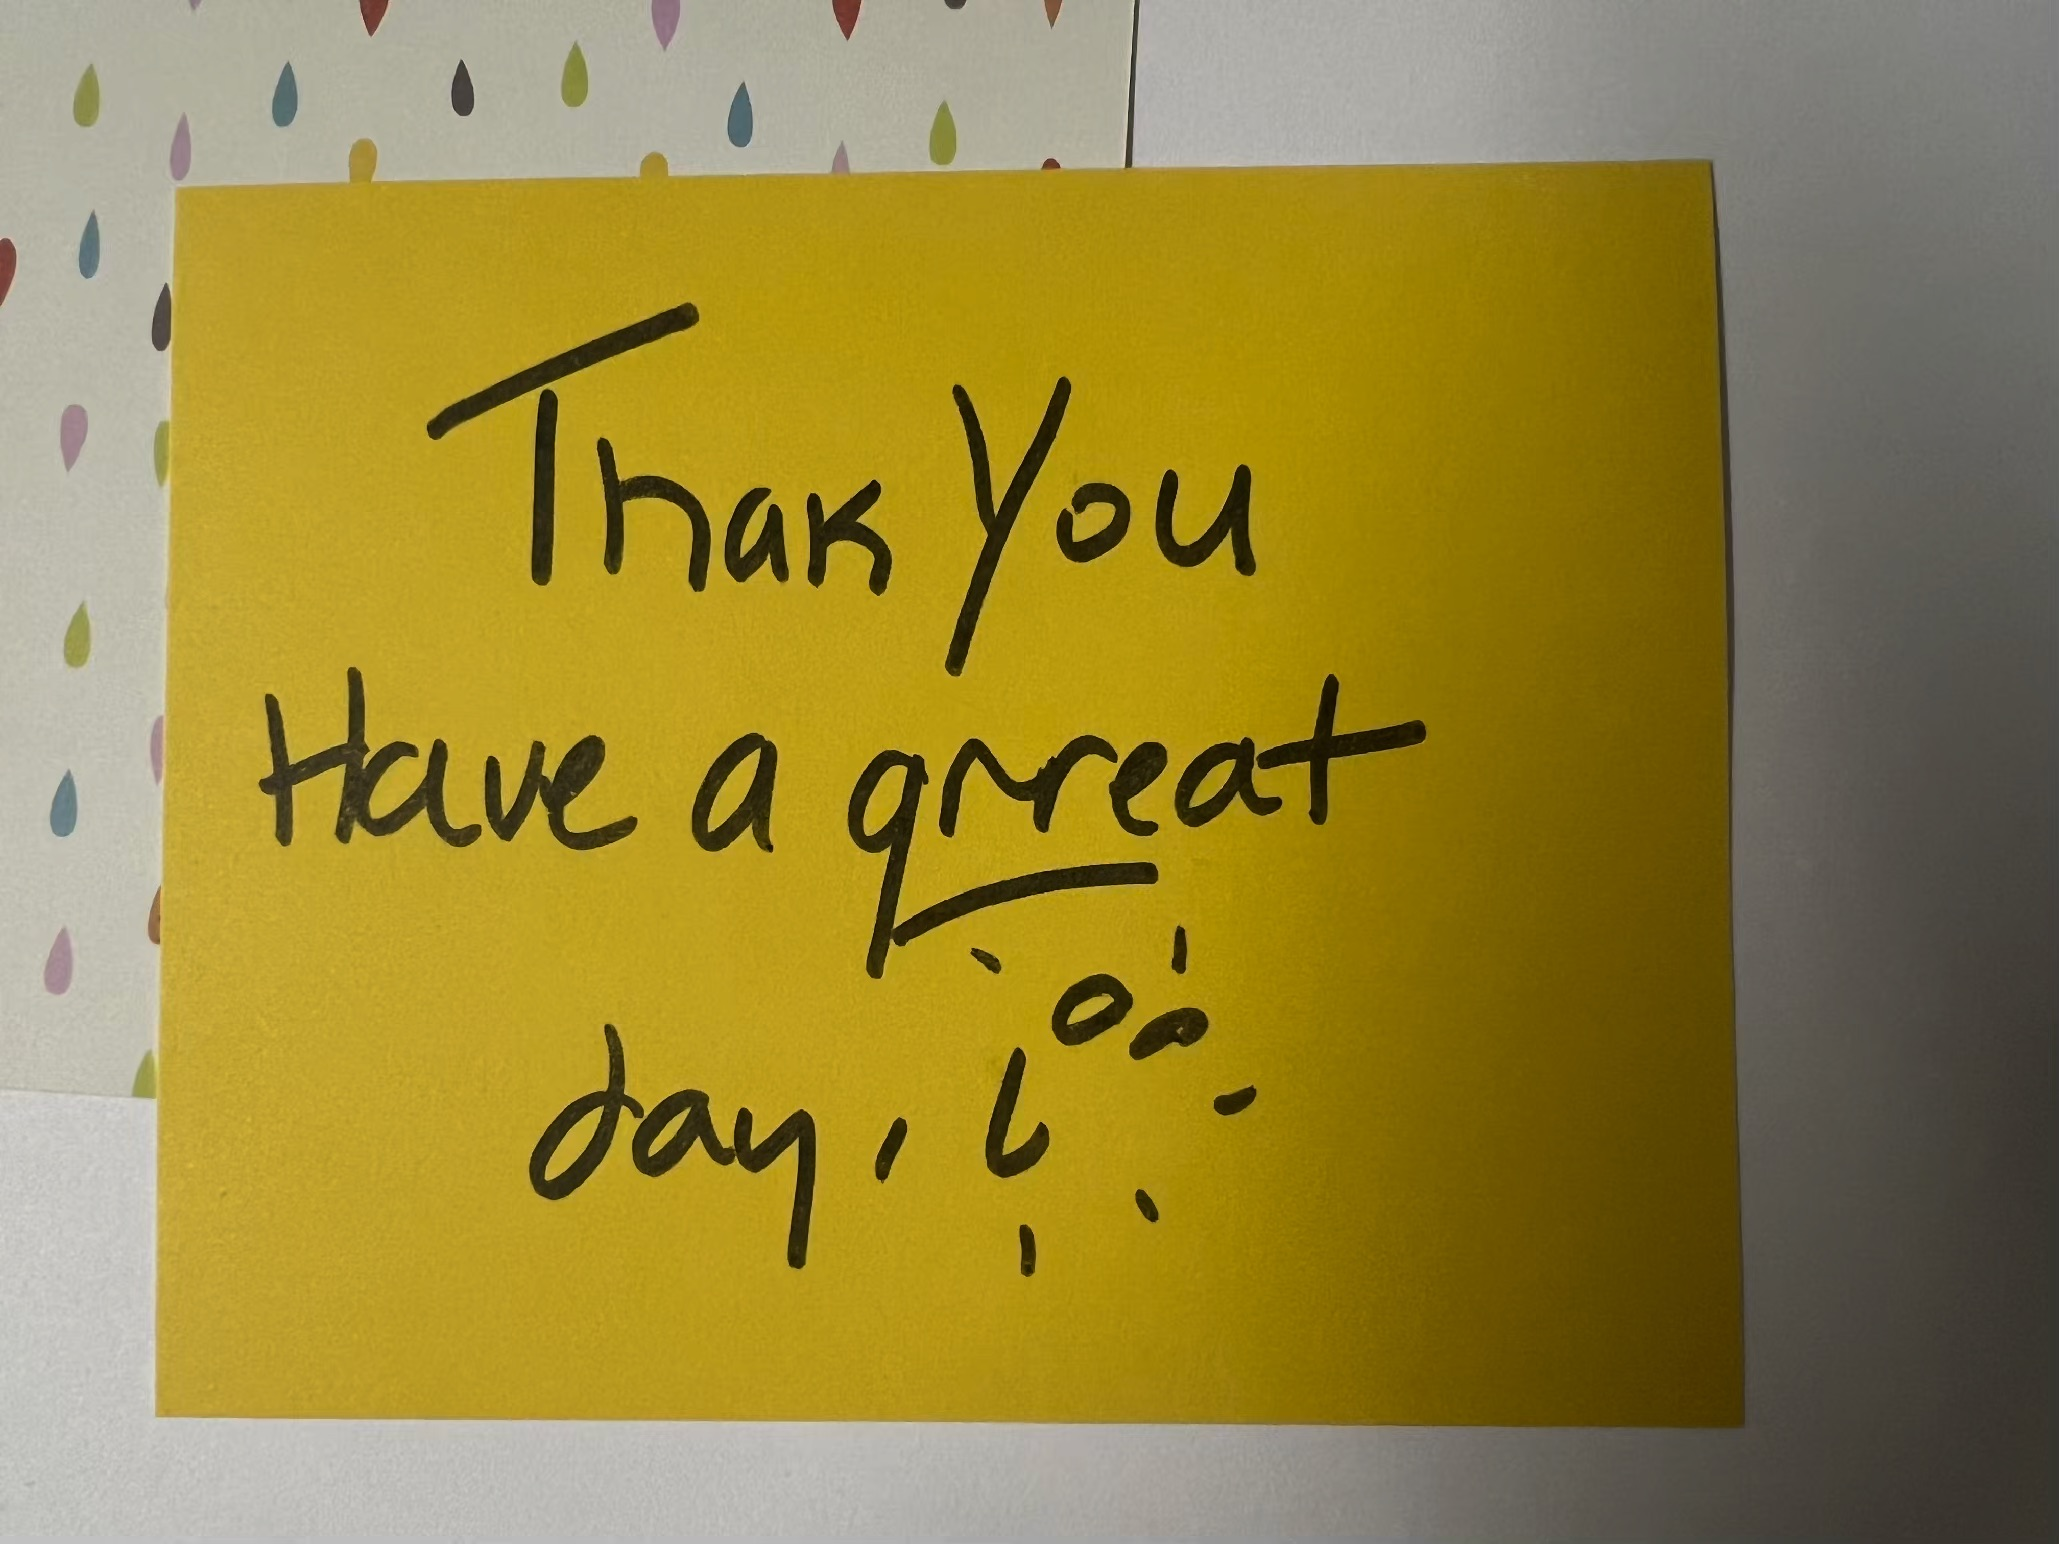 Thak You
Have a grreat
day,